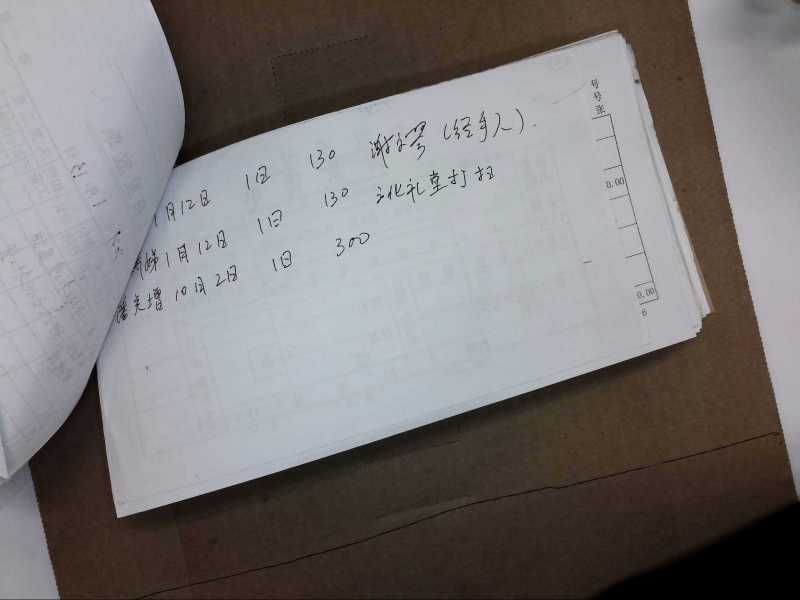 1月12日 1日 130 谢文琴(经手人).
娣1月12日 1日 130 文化礼堂打扫
潘光增 10月2日 1日 300
号
号
张
0.00
0.00
6